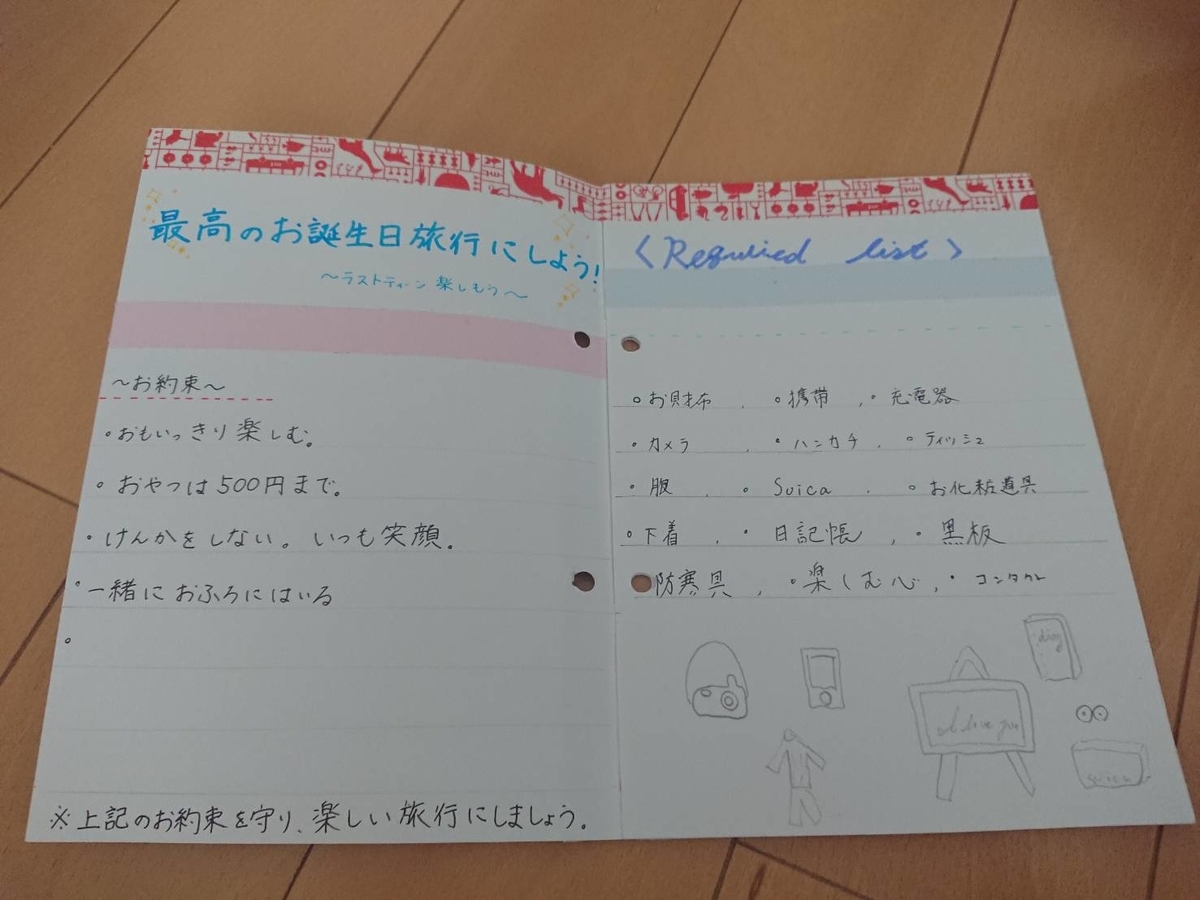 最高のお誕生日旅行にしよう!
〜ラストティーン楽しもう〜
〜お約束〜
・おもいっきり楽しむ。
・おやつは500円まで。
・けんかをしない。いつも笑顔.
・一緒におふろにはいる
・
※上記のお約束を守り、楽しい旅行にしましょう。
<Requried list>
・お財布 , ・携帯 , ・充電器
・カメラ , ・ハンカチ , ・ティッシュ
・服 , ・Suica , ・お化粧道具
・下着 , ・日記帳 , ・黒板
防寒具 , ・楽しむ心 , ・コンタクト
I love you
suica